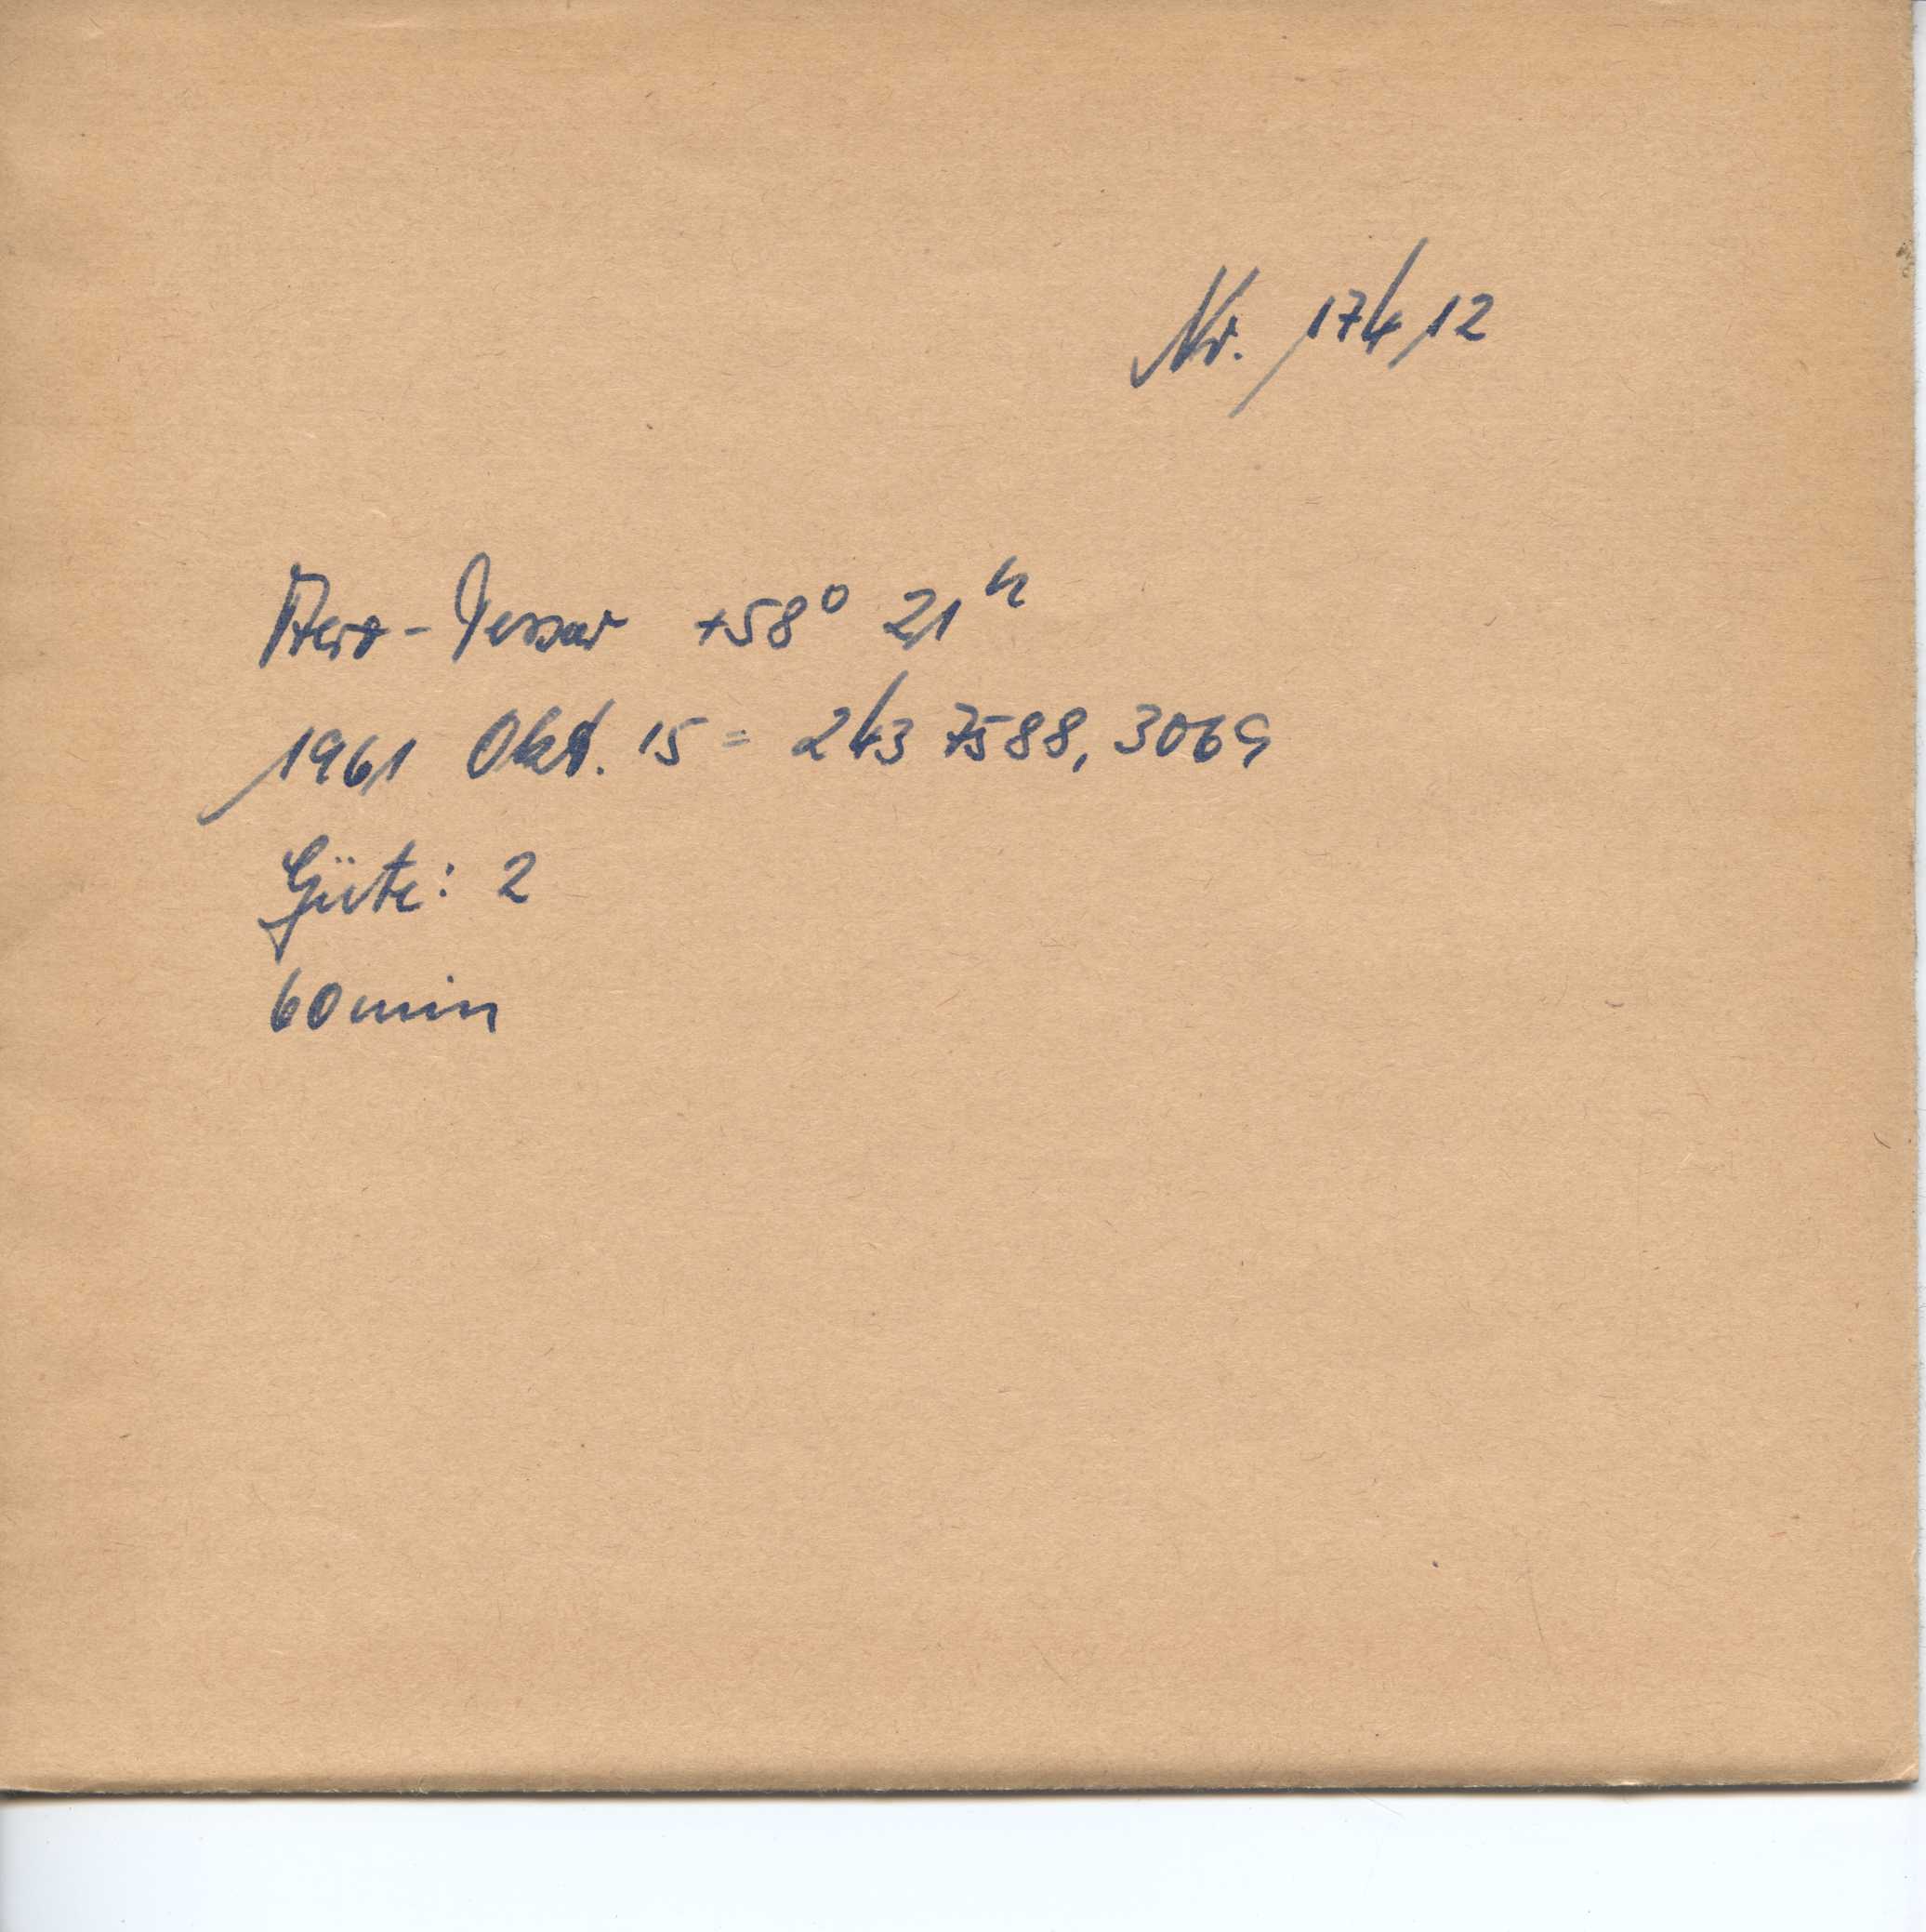 Nr. 17412
Aero-Tessar +58° 21ʰ
1961 Okt. 15 = 243 7588,3069
Güte: 2
60 min